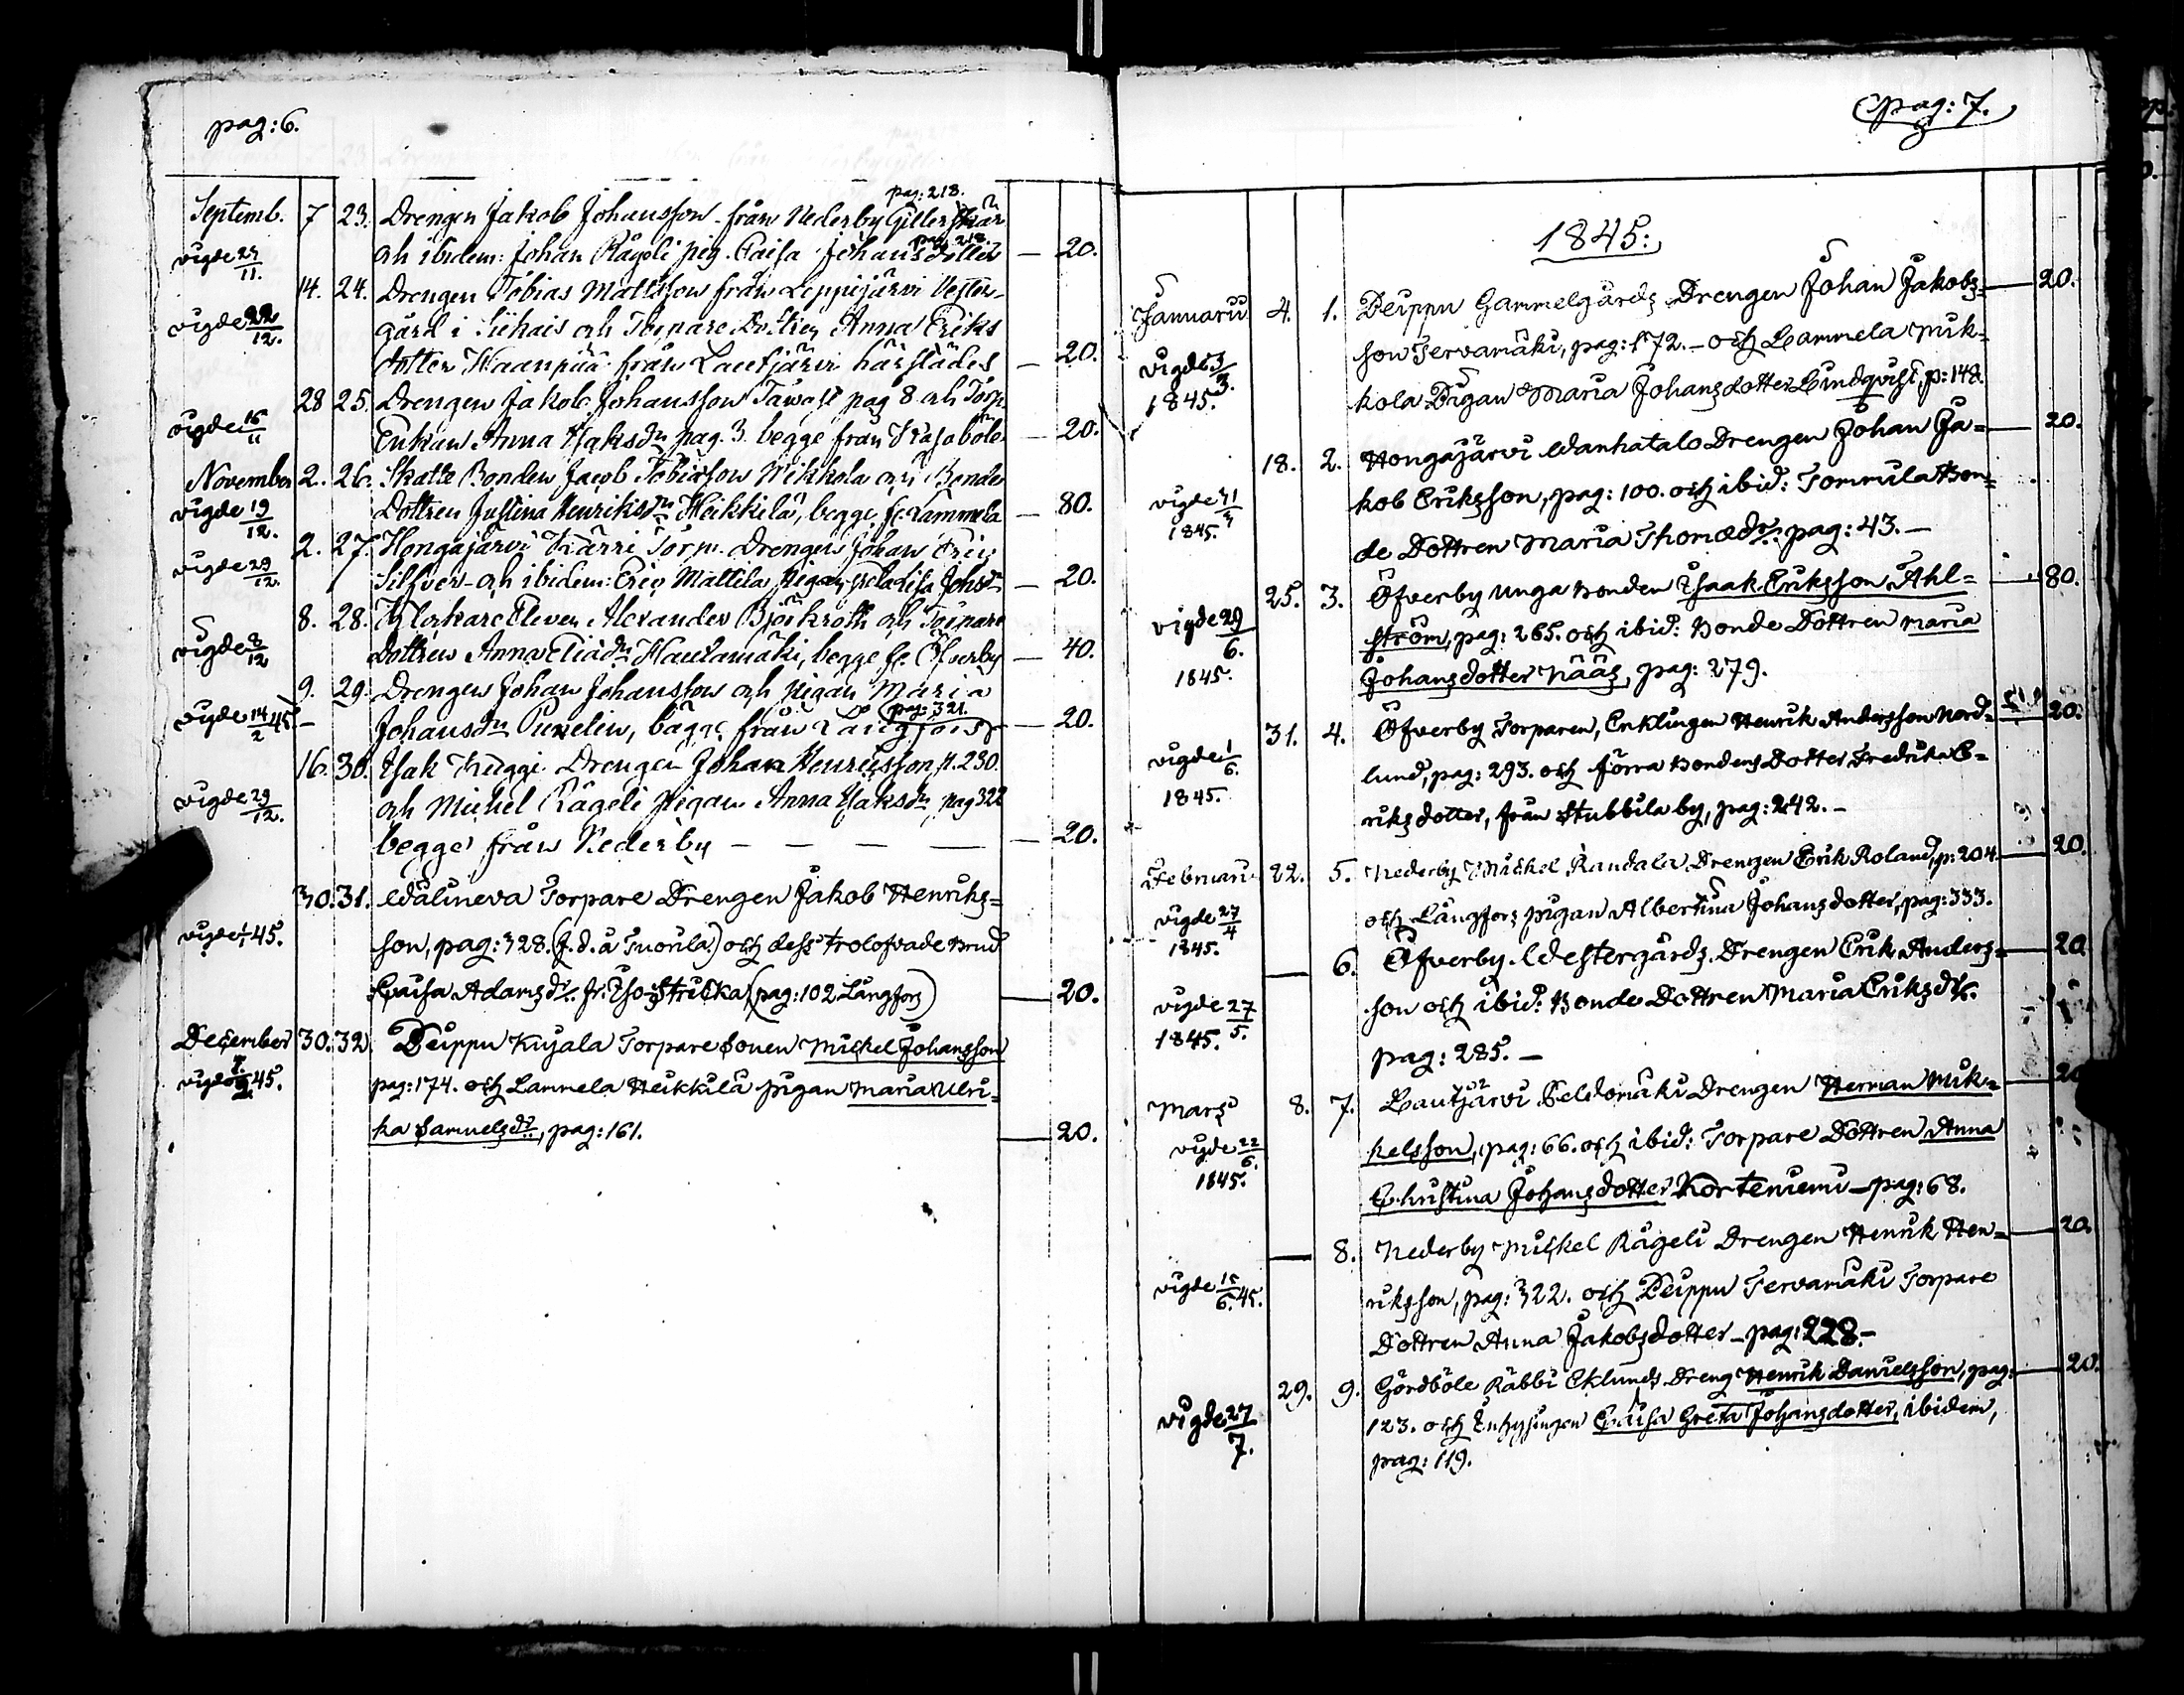 pag: 6.
pag: 218.
Septemb. 7 23. Drengen Jakob Johansson från Nederby Gillerskär
vigde 24/11. och ibidem: Johan Rågeli pig. Caisa Johans dotter pag. 218. — 20.
14. 24. Drengen Tobias Mattsson från Leppijärvi Vester-
vigde 22/12. gård i Siikais och Torpare Dottren Anna Eriks
dotter Haanpää från Lautjärvi härstädes — 20.
28 25. Drengen Jakob Johansson Tawast pag 8. och Torp.
vigde 16/11 Enkan Anna Isaksdr pag. 3. begge från Kasaböle — 20.
November 2. 26. Skatte Bonden Jacob Tobiasson Mikkola och Bonde
vigde 19/12. Dottren Justina Henriksdr Heikkilä, begge fr. Lammela — 80.
2. 27. Hongajärvi Kärri Torp. Drengen Johan Eric
vigde 29/12. Silfver och ibidem: Eric Mattila pigan Johsdr — 20.
8. 28. Klockare Eleven Alexander Björkroth och Torpare
vigde 8/12 Dottren Anna Eliædr Hautamäki, begge fr. Öfverby — 40.
9. 29. Drengen Johan Johansson och pigan Maria
pag: 321.
vigde 14/2 45 — Johansdr Punelin, bägge från Långfors — 20.
16. 30. Isak Knuggi Drengen Johan Henricsson p. 230.
vigde 29/12. och Michel Rågeli pigan Anna Isaksdr, pag 322
begge från Nederby — — — — 20.
30. 31. Walineva Torpare Drengen Jakob Henriks=
vigde 1/1 45. son, pag: 328. (f. d. å Tuorila.) och dess trolofvade Brud
Caisa Adamsdr. fr. Iso-Stricka (pag: 102 Långfors) — 20.
December 30. 32. Peippu Kujala Torpare Sonen Michel Johansson
vigde 45. pag: 174. och Lammela Heikkilä pigan Maria Ulri=
ka Samuelsdr., pag: 161. — 20.
pag: 7.
1845:
Januarii 4. 1. Peippu Gammelgårds Drengen Johan Jakobs= — 20.
vigde 3/3. 1845. son Tervamäki, pag: 172. — och Lammela Mik=
kola Pigan Maria Johansdotter Lindqvist, p: 148.
18. 2. Hongajärvi Wanhatalo Drengen Johan Ja= — 20.
vigde 1845. kob Eriksson, pag: 100. och ibid: Tommila Bon=
de Dottren Maria Thomædr. pag: 43. —
25. 3. Öfverby unga Bonden Isaak Eriksson Ahl= — 80.
vigde 29/6. ström, pag: 265. och ibid: Bonde Dottren Maria
1845. Johansdotter Nääs, pag: 279.
31. 4. Öfverby Torparen, Enklingen Henrik Andersson Nord= — 20.
vigde 1/6. lund, pag: 293. och förra Bondens Dotter Fredrika E=
1845. riksdotter, från Stubbila by, pag: 242. —
Februari 22. 5. Nederby Michel Randala Drengen Erik Roland, p: 204. — 20.
vigde 27/4 1845. och Långfors pigan Albertina Johansdotter, pag: 333.
— 6. Öfverby Westergårds Drengen Erik Anders= — 20
vigde 27/5. son och ibid: Bonde Dottren Maria Eriksdr.
1845. pag: 285. —
Mars 8. 7. Lautjärvi Peldomäki Drengen Herman Mik= — 20
vigde 22/6. kelsson, pag: 66. och ibid: Torpare Dottren Anna
1845. Christina Johansdotter Korteniemi — pag: 68.
— 8. Nederby Michel Rågeli Drengen Henrik Hen= — 20.
vigde 15/6. 45. riksson, pag: 322. och Peippu Tervamäki Torpare
Dottren Anna Jakobsdotter — pag: 228. —
29. 9. Gördböle Räbbi Eklunds Dreng Henrik Danielsson, pag: — 20.
vigde 27/7. 123. och Inhysingen Caisa Greta Johansdotter, ibidem,
pag: 119.